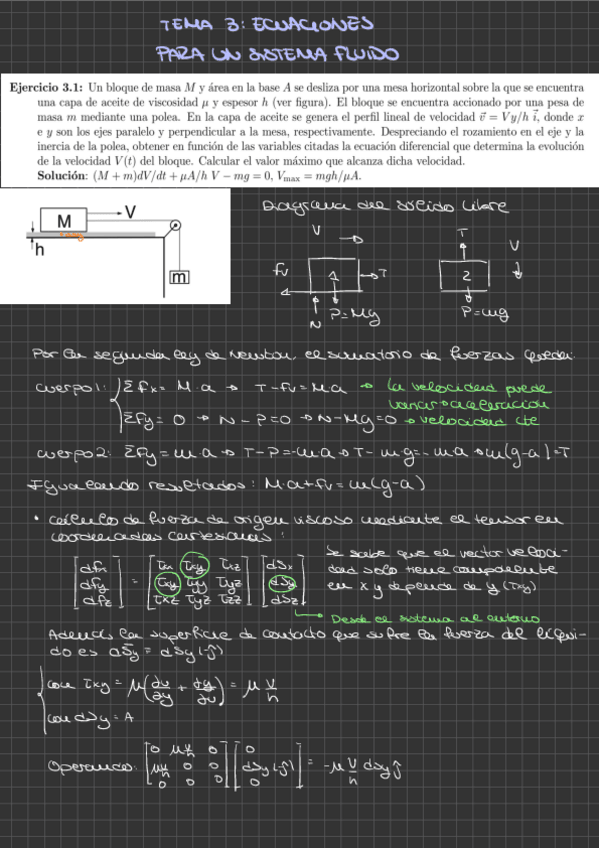 TEMA 3: ECUACIONES
PARA UN SISTEMA FLUIDO
Ejercicio 3.1: Un bloque de masa M y área en la base A se desliza por una mesa horizontal sobre la que se encuentra
una capa de aceite de viscosidad μ y espesor h (ver figura). El bloque se encuentra accionado por una pesa de
masa m mediante una polea. En la capa de aceite se genera el perfil lineal de velocidad v⃗ = Vy/h i⃗, donde x
e y son los ejes paralelo y perpendicular a la mesa, respectivamente. Despreciando el rozamiento en el eje y la
inercia de la polea, obtener en función de las variables citadas la ecuación diferencial que determina la evolución
de la velocidad V(t) del bloque. Calcular el valor máximo que alcanza dicha velocidad.
Solución: (M + m)dV/dt + μA/h V − mg = 0, Vmax = mgh/μA.
M
V
h
m
Diagrama del sólido libre
V
fv
1
T
N
P=Mg
T
V
2
P=mg
Por la segunda ley de Newton, el sumatorio de fuerzas queda:
cuerpo 1: Σfx = M·a → T-fv=Ma → la velocidad puede
variar → aceleración
Σfy = 0 → N-P=0 → N-Mg=0 → velocidad cte
cuerpo 2: Σfy=m·a → T-P=-ma → T-mg=-ma → m(g-a)=T
Igualando resultados: M·a+fv=m(g-a)
• Cálculo de fuerza de origen viscoso mediante el tensor en
coordenadas cartesianas:
[dfx dfy dfz] = [τxx τxy τxz; τxy τyy τyz; τxz τyz τzz] [dSx dSy dSz]
Se sabe que el vector veloci-
dad solo tiene componente
en x y depende de y (τxy)
Desde el sistema al entorno
Además la superficie de contacto que sufre la fuerza del líqui-
do es dSy = dSy(-ĵ)
con τxy = μ(∂u/∂y + ∂y/∂u) = μ V/h
con dSy = A
Operando: [0 μV/h 0; μV/h 0 0; 0 0 0] [0 dSy(-ĵ) 0] = -μ V/h dSy ĵ